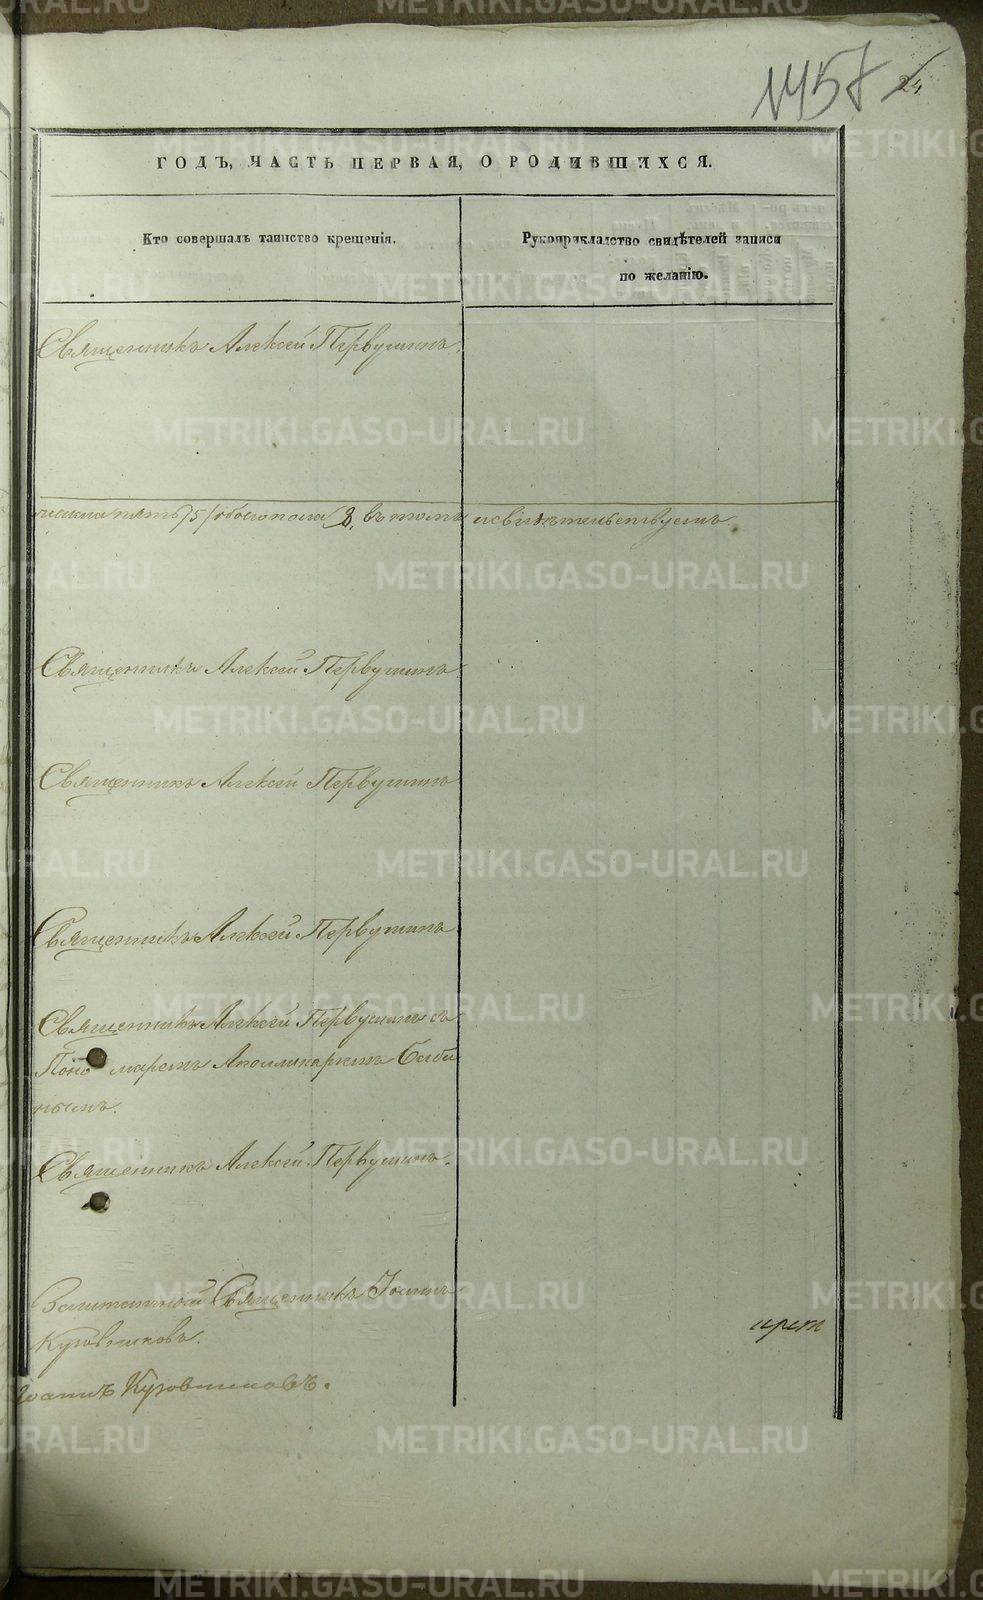 1457
24
ГОДЪ, ЧАСТЬ ПЕРВАЯ, О РОДИВШИХСЯ.
Кто совершалъ таинство крещенія.
Рукоприкладство свидѣтелей записи
по желанію.
Священникъ Алексѣй Первушинъ.
пять /5/ обоего пола 8, въ томъ и свидѣтельствуемъ
Священникъ Алексѣй Первушинъ.
Священникъ Алексѣй Первушинъ
Священникъ Алексѣй Первушинъ
Священникъ Алексѣй Первушинъ съ
Пономаремъ Аполлинаріемъ Баби
нымъ.
Священникъ Алексѣй Первушинъ.
Заштатный Священникъ Іоаннъ
Кузовниковъ.
Іоаннъ Кузовниковъ.
METRIKI.GASO-URAL.RU